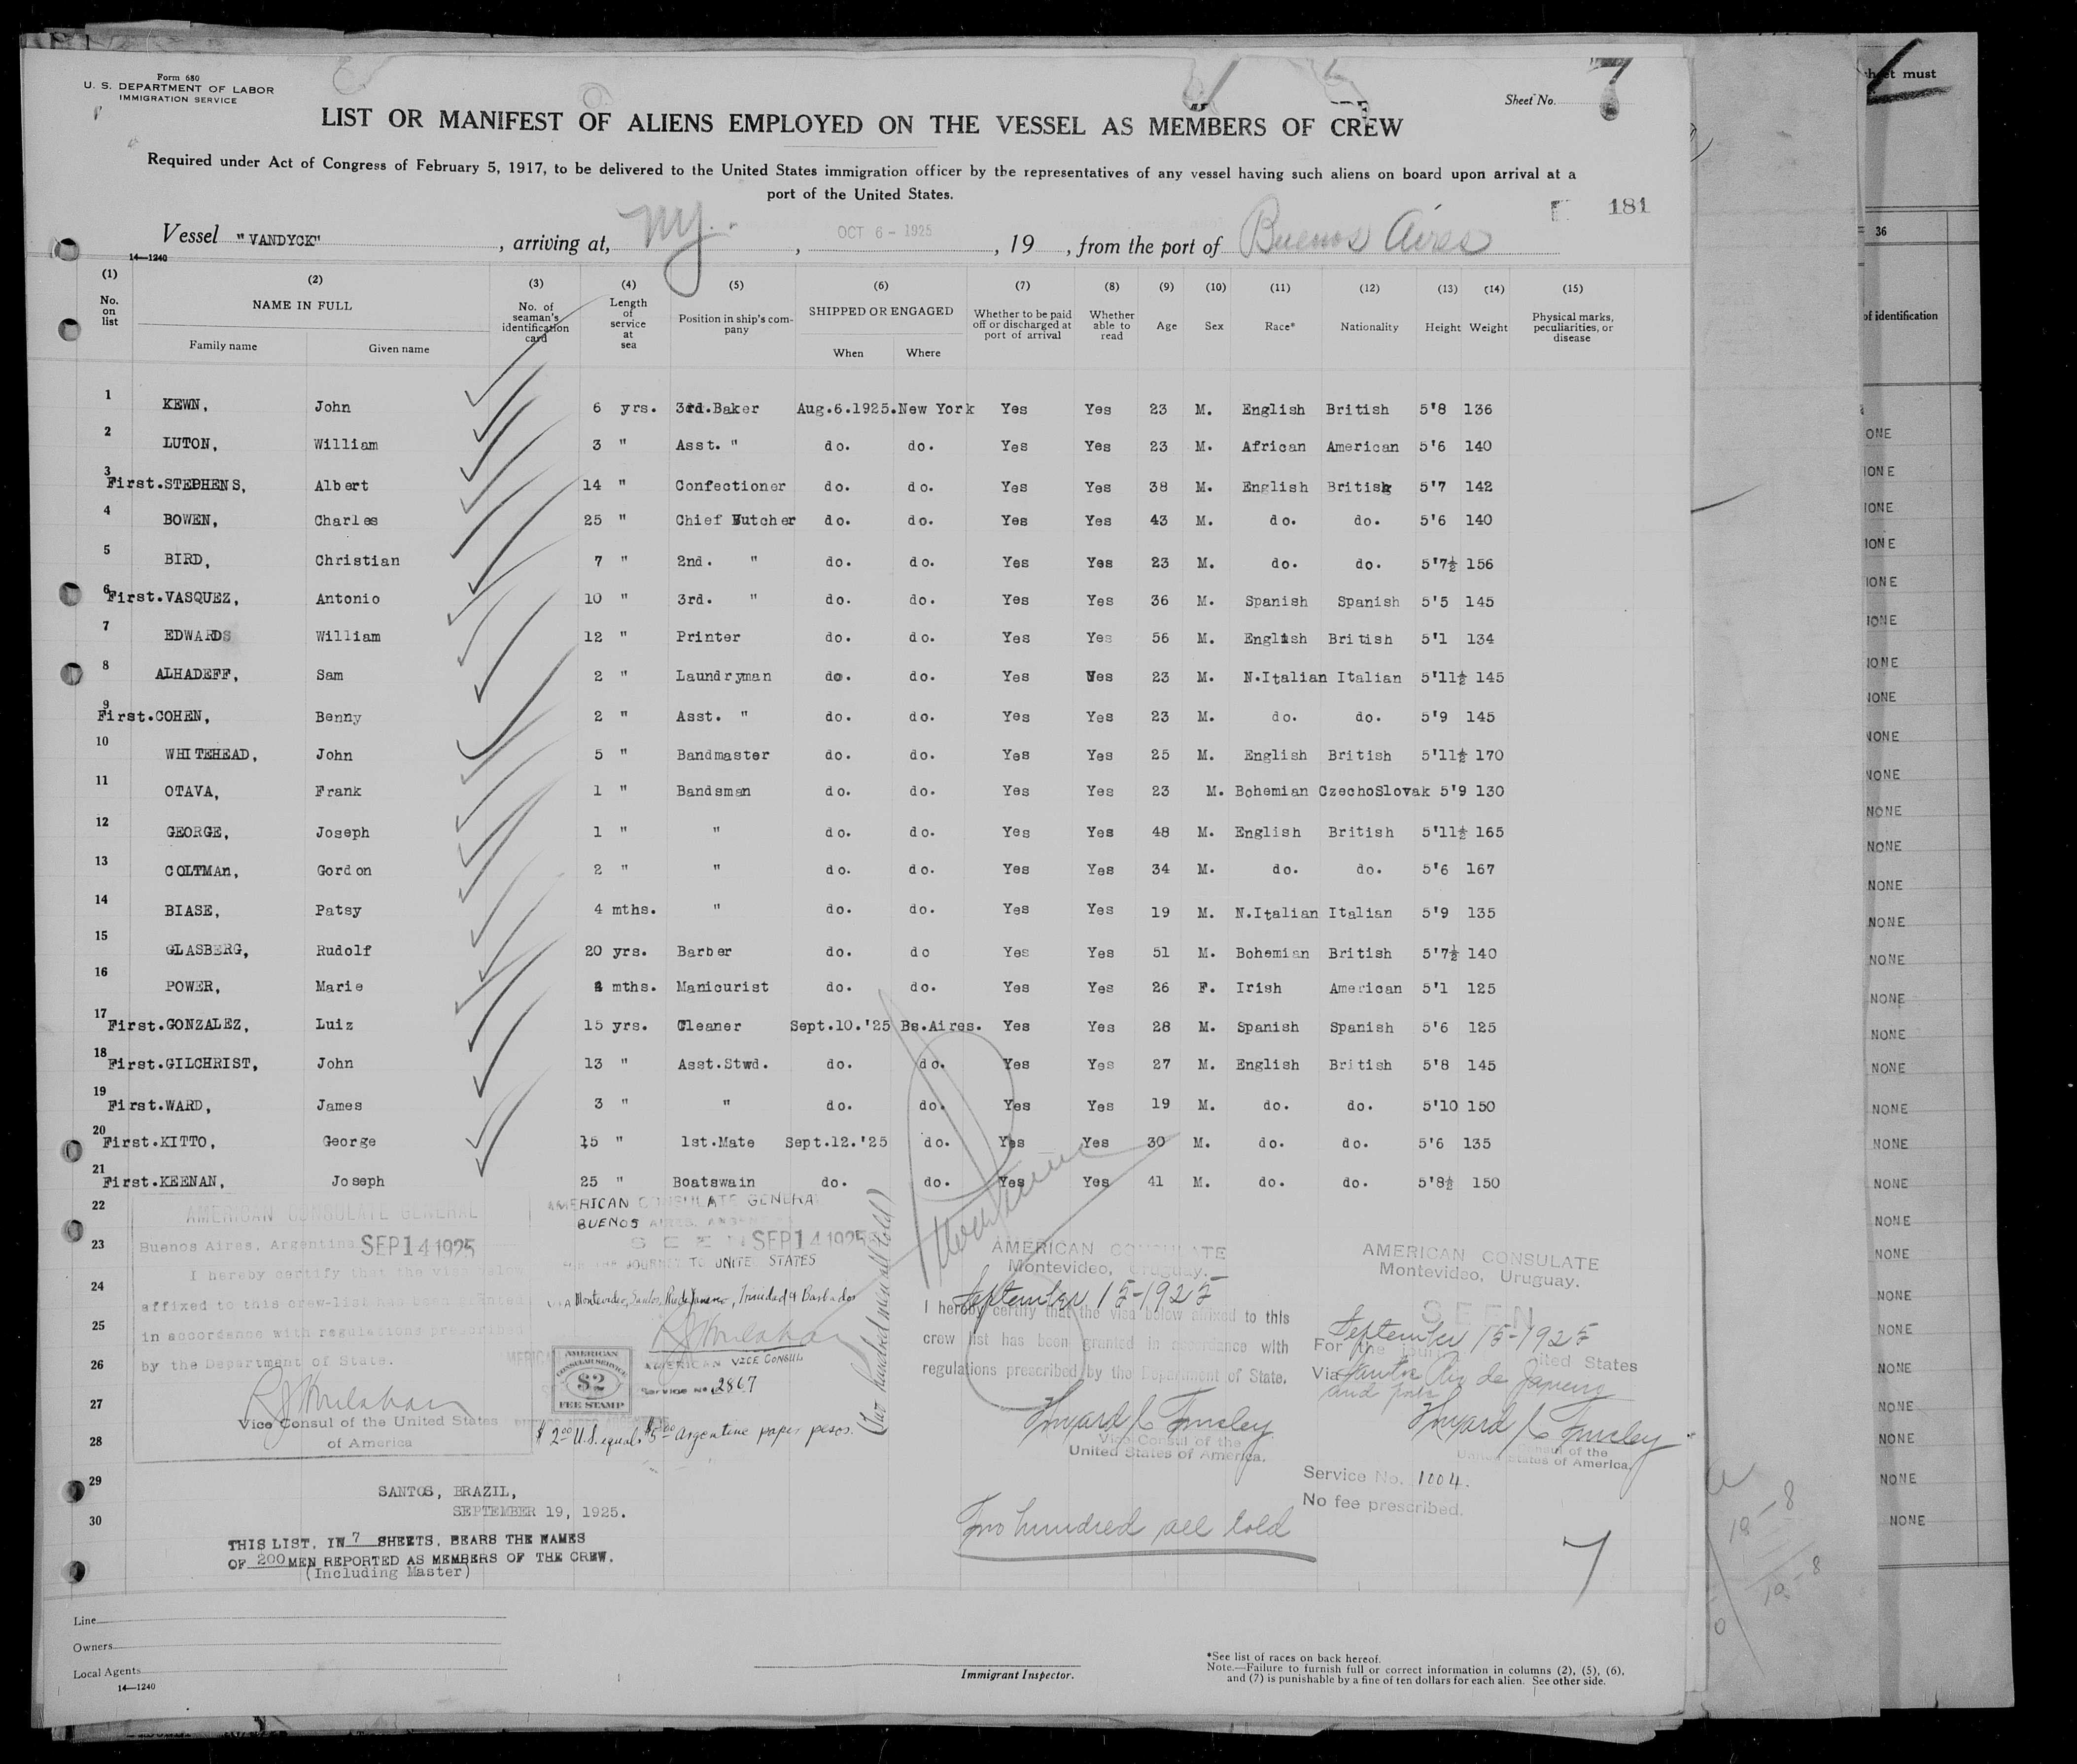 Form 680
U. S. DEPARTMENT OF LABOR
IMMIGRATION SERVICE
Sheet No. 7
LIST OR MANIFEST OF ALIENS EMPLOYED ON THE VESSEL AS MEMBERS OF CREW
Required under Act of Congress of February 5, 1917, to be delivered to the United States immigration officer by the representatives of any vessel having such aliens on board upon arrival at a
port of the United States.
181
Vessel "VANDYCK", arriving at, NY., OCT 6 - 1925, 19 , from the port of Buenos Aires
14—1240
(1) (2) (3) (4) (5) (6) (7) (8) (9) (10) (11) (12) (13) (14) (15)
No. on list NAME IN FULL Family name Given name No. of seaman's identification card Length of service at sea Position in ship's company SHIPPED OR ENGAGED When Where Whether to be paid off or discharged at port of arrival Whether able to read Age Sex Race* Nationality Height Weight Physical marks, peculiarities, or disease
1 KEWN, John 6 yrs. 3rd.Baker Aug.6.1925. New York Yes Yes 23 M. English British 5'8 136
2 LUTON, William 3 " Asst. " do. do. Yes Yes 23 M. African American 5'6 140
3 First.STEPHENS, Albert 14 " Confectioner do. do. Yes Yes 38 M. English British 5'7 142
4 BOWEN, Charles 25 " Chief Butcher do. do. Yes Yes 43 M. do. do. 5'6 140
5 BIRD, Christian 7 " 2nd. " do. do. Yes Yes 23 M. do. do. 5'7½ 156
6 First.VASQUEZ, Antonio 10 " 3rd. " do. do. Yes Yes 36 M. Spanish Spanish 5'5 145
7 EDWARDS William 12 " Printer do. do. Yes Yes 56 M. English British 5'1 134
8 ALHADEFF, Sam 2 " Laundryman do. do. Yes Yes 23 M. N.Italian Italian 5'11½ 145
9 First.COHEN, Benny 2 " Asst. " do. do. Yes Yes 23 M. do. do. 5'9 145
10 WHITEHEAD, John 5 " Bandmaster do. do. Yes Yes 25 M. English British 5'11½ 170
11 OTAVA, Frank 1 " Bandsman do. do. Yes Yes 23 M. Bohemian CzechoSlovak 5'9 130
12 GEORGE, Joseph 1 " " do. do. Yes Yes 48 M. English British 5'11½ 165
13 COLTMAn, Gordon 2 " " do. do. Yes Yes 34 M. do. do. 5'6 167
14 BIASE, Patsy 4 mths. " do. do. Yes Yes 19 M. N.Italian Italian 5'9 135
15 GLASBERG, Rudolf 20 yrs. Barber do. do Yes Yes 51 M. Bohemian British 5'7½ 140
16 POWER, Marie mths. Manicurist do. do. Yes Yes 26 F. Irish American 5'1 125
17 First.GONZALEZ, Luiz 15 yrs. Cleaner Sept.10.'25 Bs.Aires. Yes Yes 28 M. Spanish Spanish 5'6 125
18 First.GILCHRIST, John 13 " Asst.Stwd. do. do. Yes Yes 27 M. English British 5'8 145
19 First.WARD, James 3 " " do. do. Yes Yes 19 M. do. do. 5'10 150
20 First.KITTO, George 15 " 1st.Mate Sept.12.'25 do. Yes Yes 30 M. do. do. 5'6 135
21 First.KEENAN, Joseph 25 " Boatswain do. do. Yes Yes 41 M. do. do. 5'8½ 150
22
23
24
25
26
27
28
29
30
AMERICAN CONSULATE GENERAL
Buenos Aires, Argentina SEP 14 1925
I hereby certify that the visa below
affixed to this crew-list has been granted
in accordance with regulations prescribed
by the Department of State.
Vice Consul of the United States
of America
AMERICAN CONSULATE GENERAL
BUENOS AIRES,
SEEN SEP 14 1925
FOR THE JOURNEY TO UNITED STATES
VIA Montevideo, Santos, Rio de Janeiro, Trinidad & Barbados
AMERICAN VICE CONSUL
Service No. 2867
AMERICAN
CONSULAR SERVICE
$2
FEE STAMP
$2.00 U.S. equals $5.00 Argentine paper pesos.
(Two hundred men all told)
AMERICAN CONSULATE
Montevideo, Uruguay.
September 15-1925
I hereby certify that the visa below affixed to this
crew list has been granted in accordance with
regulations prescribed by the Department of State.
Vice Consul of the
United States of America.
AMERICAN CONSULATE
Montevideo, Uruguay.
SEEN
September 15-1925
For the journey United States
Via Santos Rio de Janeiro
and ports
Consul of the
United States of America.
Service No. 1004.
No fee prescribed.
Two hundred all told
7
SANTOS, BRAZIL,
SEPTEMBER 19, 1925.
THIS LIST, IN 7 SHEETS, BEARS THE NAMES
OF 200 MEN REPORTED AS MEMBERS OF THE CREW.
(Including Master)
Line
Owners
Local Agents
14—1240
Immigrant Inspector.
*See list of races on back hereof.
Note.—Failure to furnish full or correct information in columns (2), (5), (6),
and (7) is punishable by a fine of ten dollars for each alien. See other side.
must
36
of identification
NONE
NONE
NONE
NONE
NONE
NONE
NONE
NONE
NONE
NONE
NONE
NONE
NONE
NONE
NONE
NONE
NONE
NONE
NONE
NONE
NONE
NONE
NONE
NONE
NONE
NONE
NONE
NONE
NONE
NONE